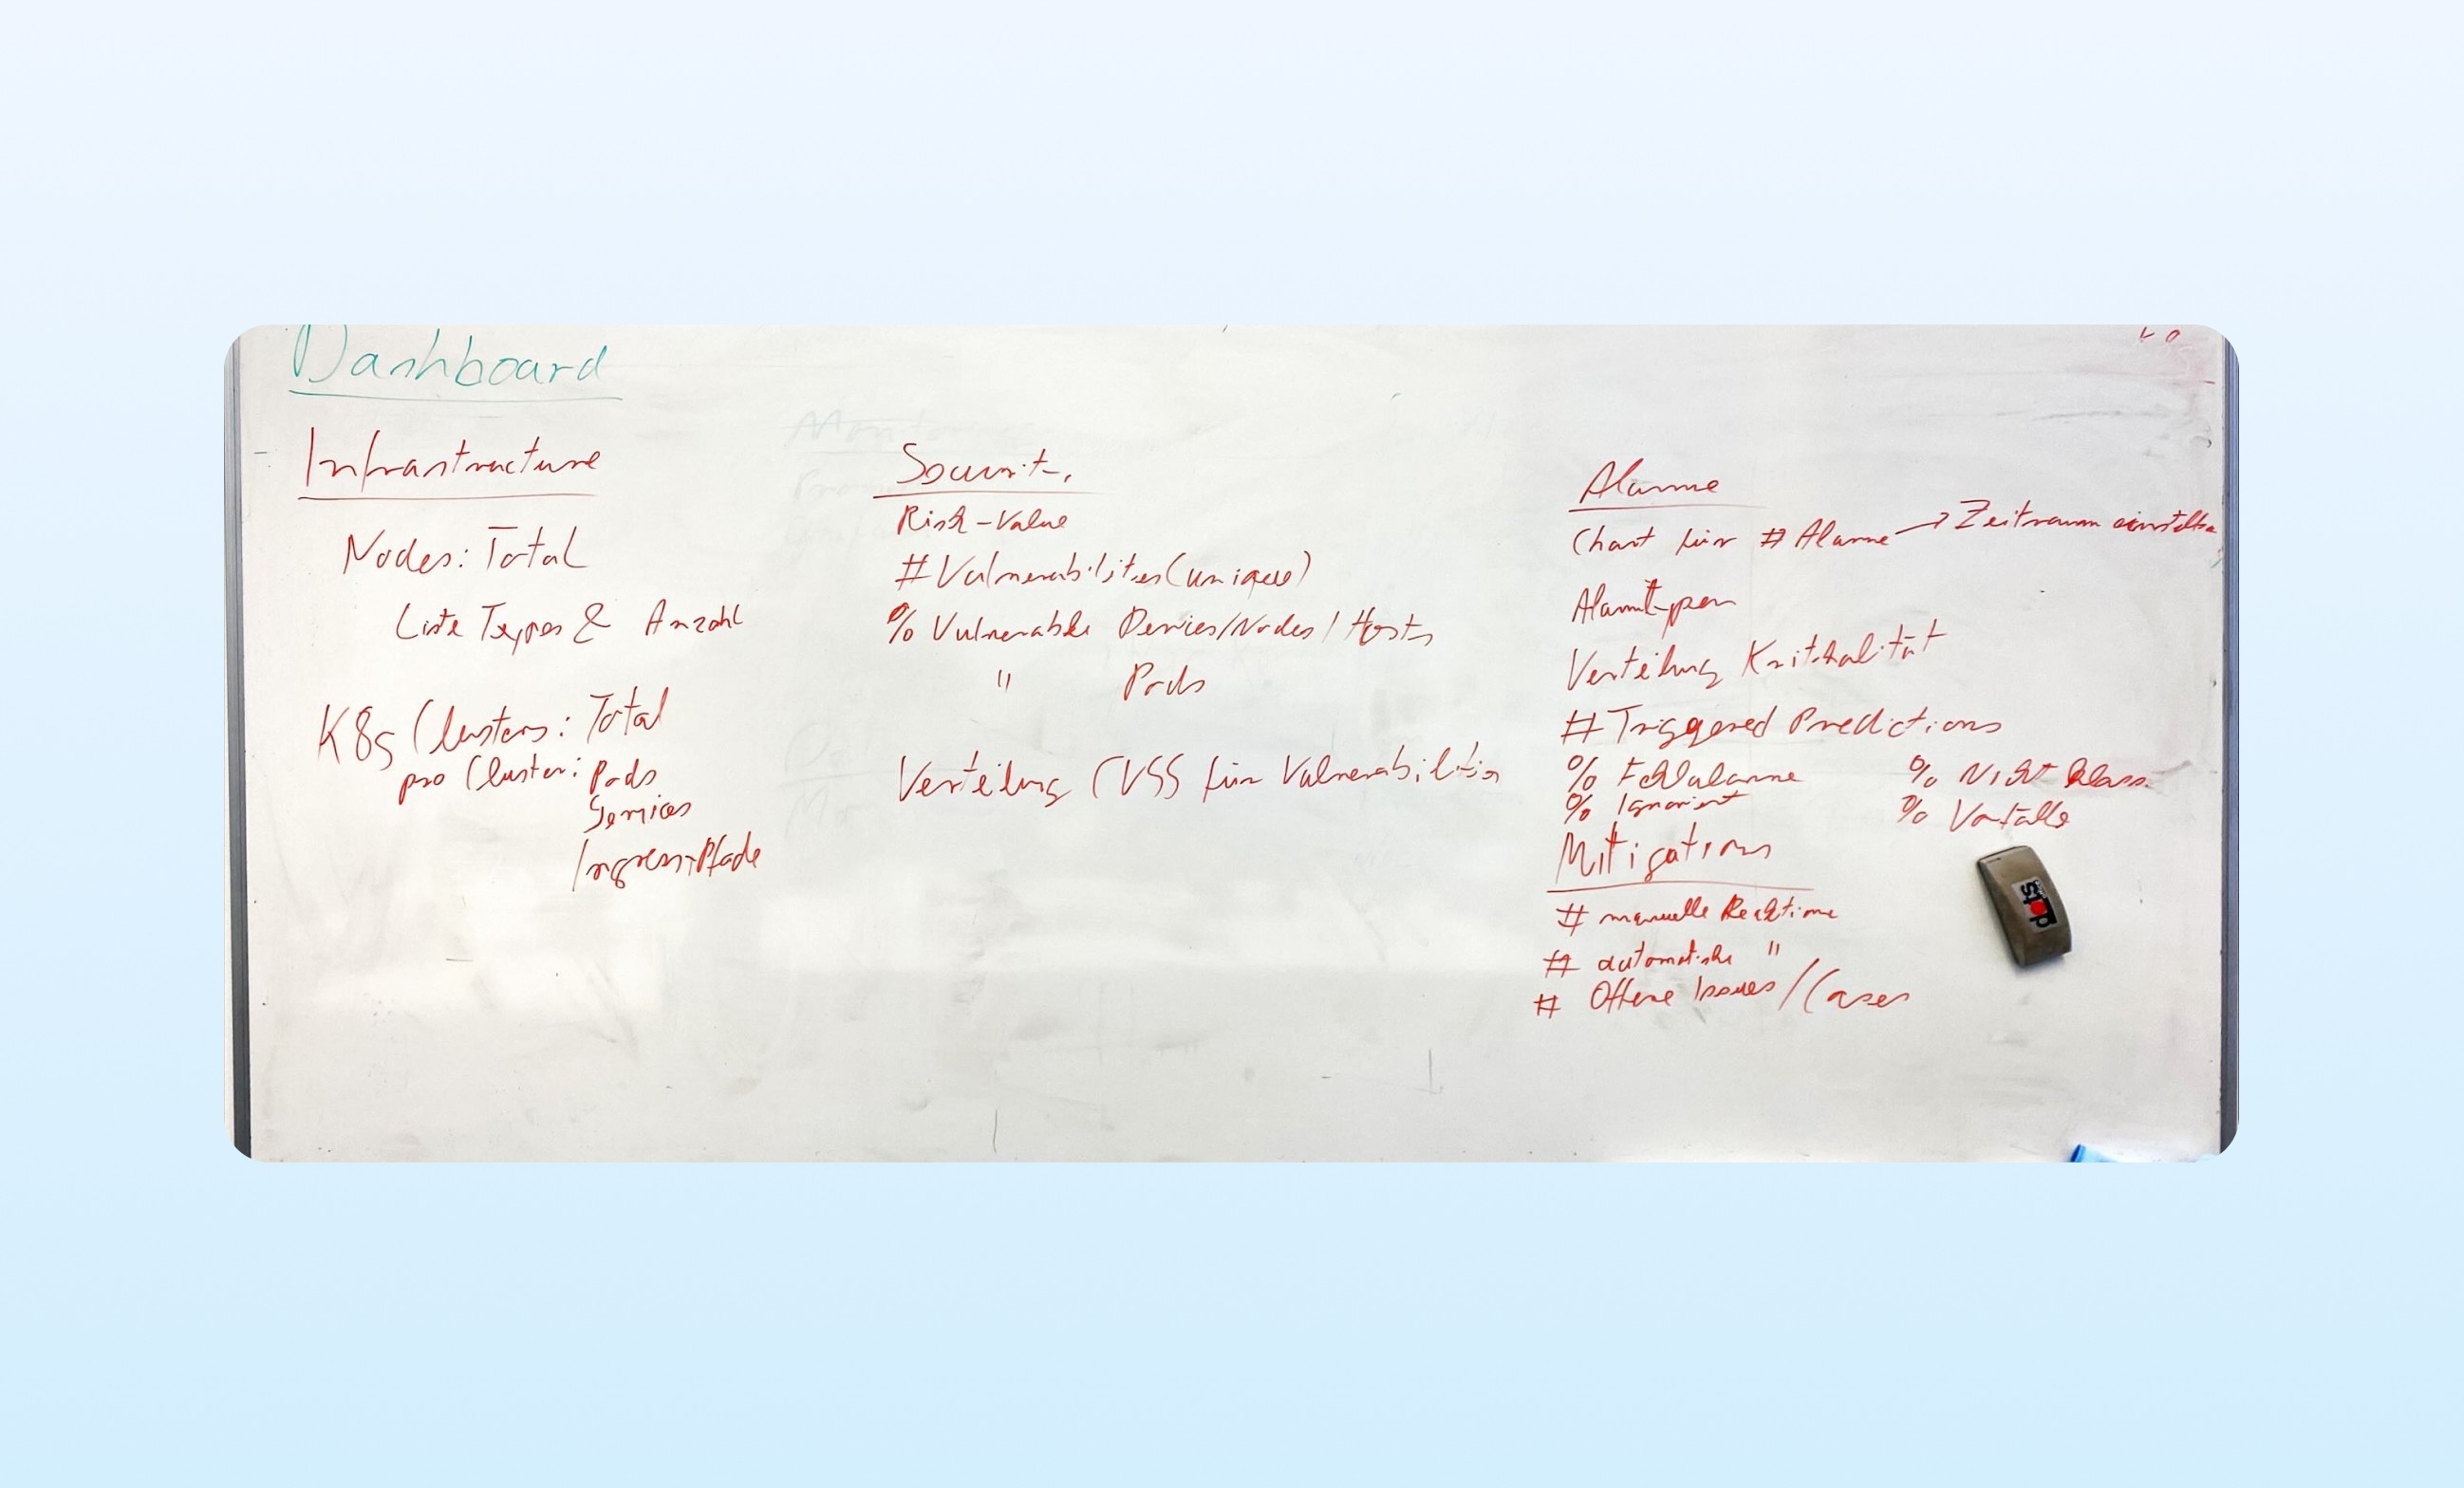 Dashboard
Infrastructure
Nodes: Total
Liste Types & Anzahl
K8s Clusters: Total
pro Cluster: Pods
Services
Ingress-Pfade
Security
Risk-Value
# Vulnerabilities (unique)
% Vulnerable Devices/Nodes/Hosts
" Pods
Verteilung CVSS für Vulnerabilities
Alarme
Chart für # Alarme → Zeitraum einstellbar
Alarmtypen
Verteilung Kritikalität
# Triggered Predictions
% Fehlalarme % Nicht klass.
% Ignoriert % Vorfälle
Mitigations
# manuelle Reaktione
# automatische "
# Offene Issues / Cases
stop